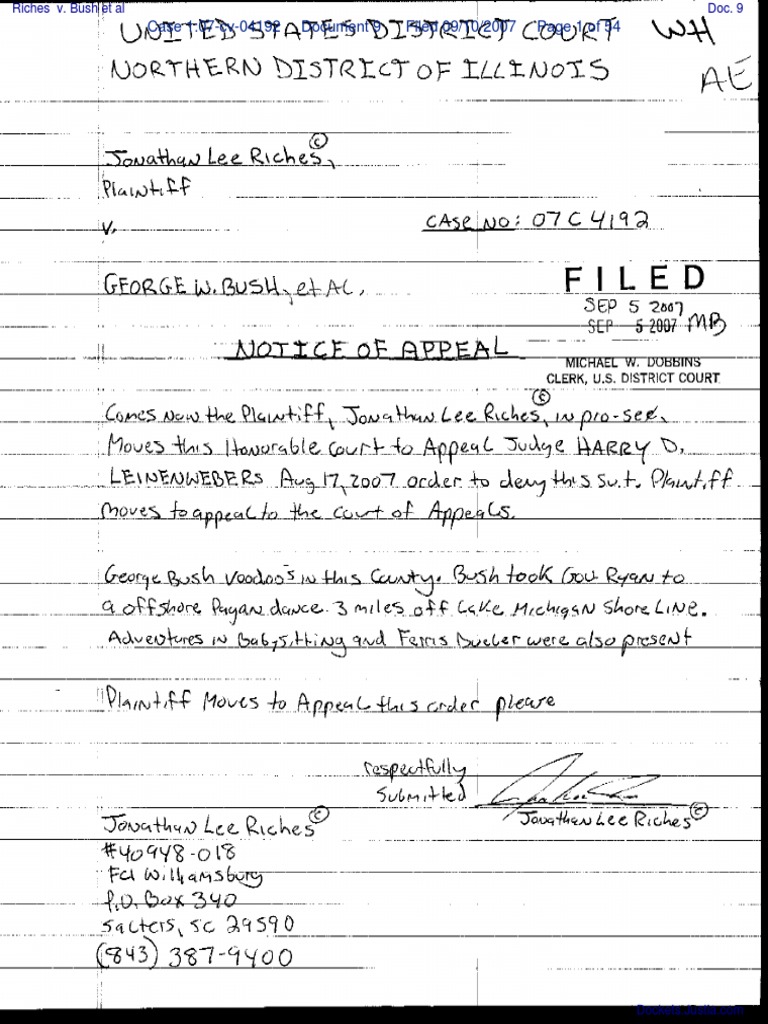 Riches v. Bush et al
Doc. 9
Case 1:07-cv-04192 Document 9 Filed 09/10/2007 Page 1 of 54
UNITED STATES DISTRICT COURT
NORTHERN DISTRICT OF ILLINOIS
WH
AE
Jonathan Lee Riches©,
Plaintiff
v.
CASE NO: 07 C 4192
GEORGE W. BUSH, et AL,
FILED
SEP 5 2007
SEP 5 2007 MB
NOTICE OF APPEAL
MICHAEL W. DOBBINS
CLERK, U.S. DISTRICT COURT
Comes Now the Plaintiff, Jonathan Lee Riches©, in pro-see,
Moves this Honorable Court to Appeal Judge HARRY D.
LEINENWEBERS Aug 17, 2007 order to deny this suit. Plaintiff
moves to appeal to the Court of Appeals.
George Bush Voodoo's in this County. Bush took Gov Ryan to
a offshore Pagan dance 3 miles off Lake Michigan Shore Line.
Adventures in Babysitting and Ferris Bueler were also present
Plaintiff Moves to Appeal this order please
respectfully
Submitted
Jonathan Lee Riches©
Jonathan Lee Riches©
#40948-018
FCI Williamsburg
P.O. Box 340
Salters, SC 29590
(843) 387-9400
Dockets.Justia.com